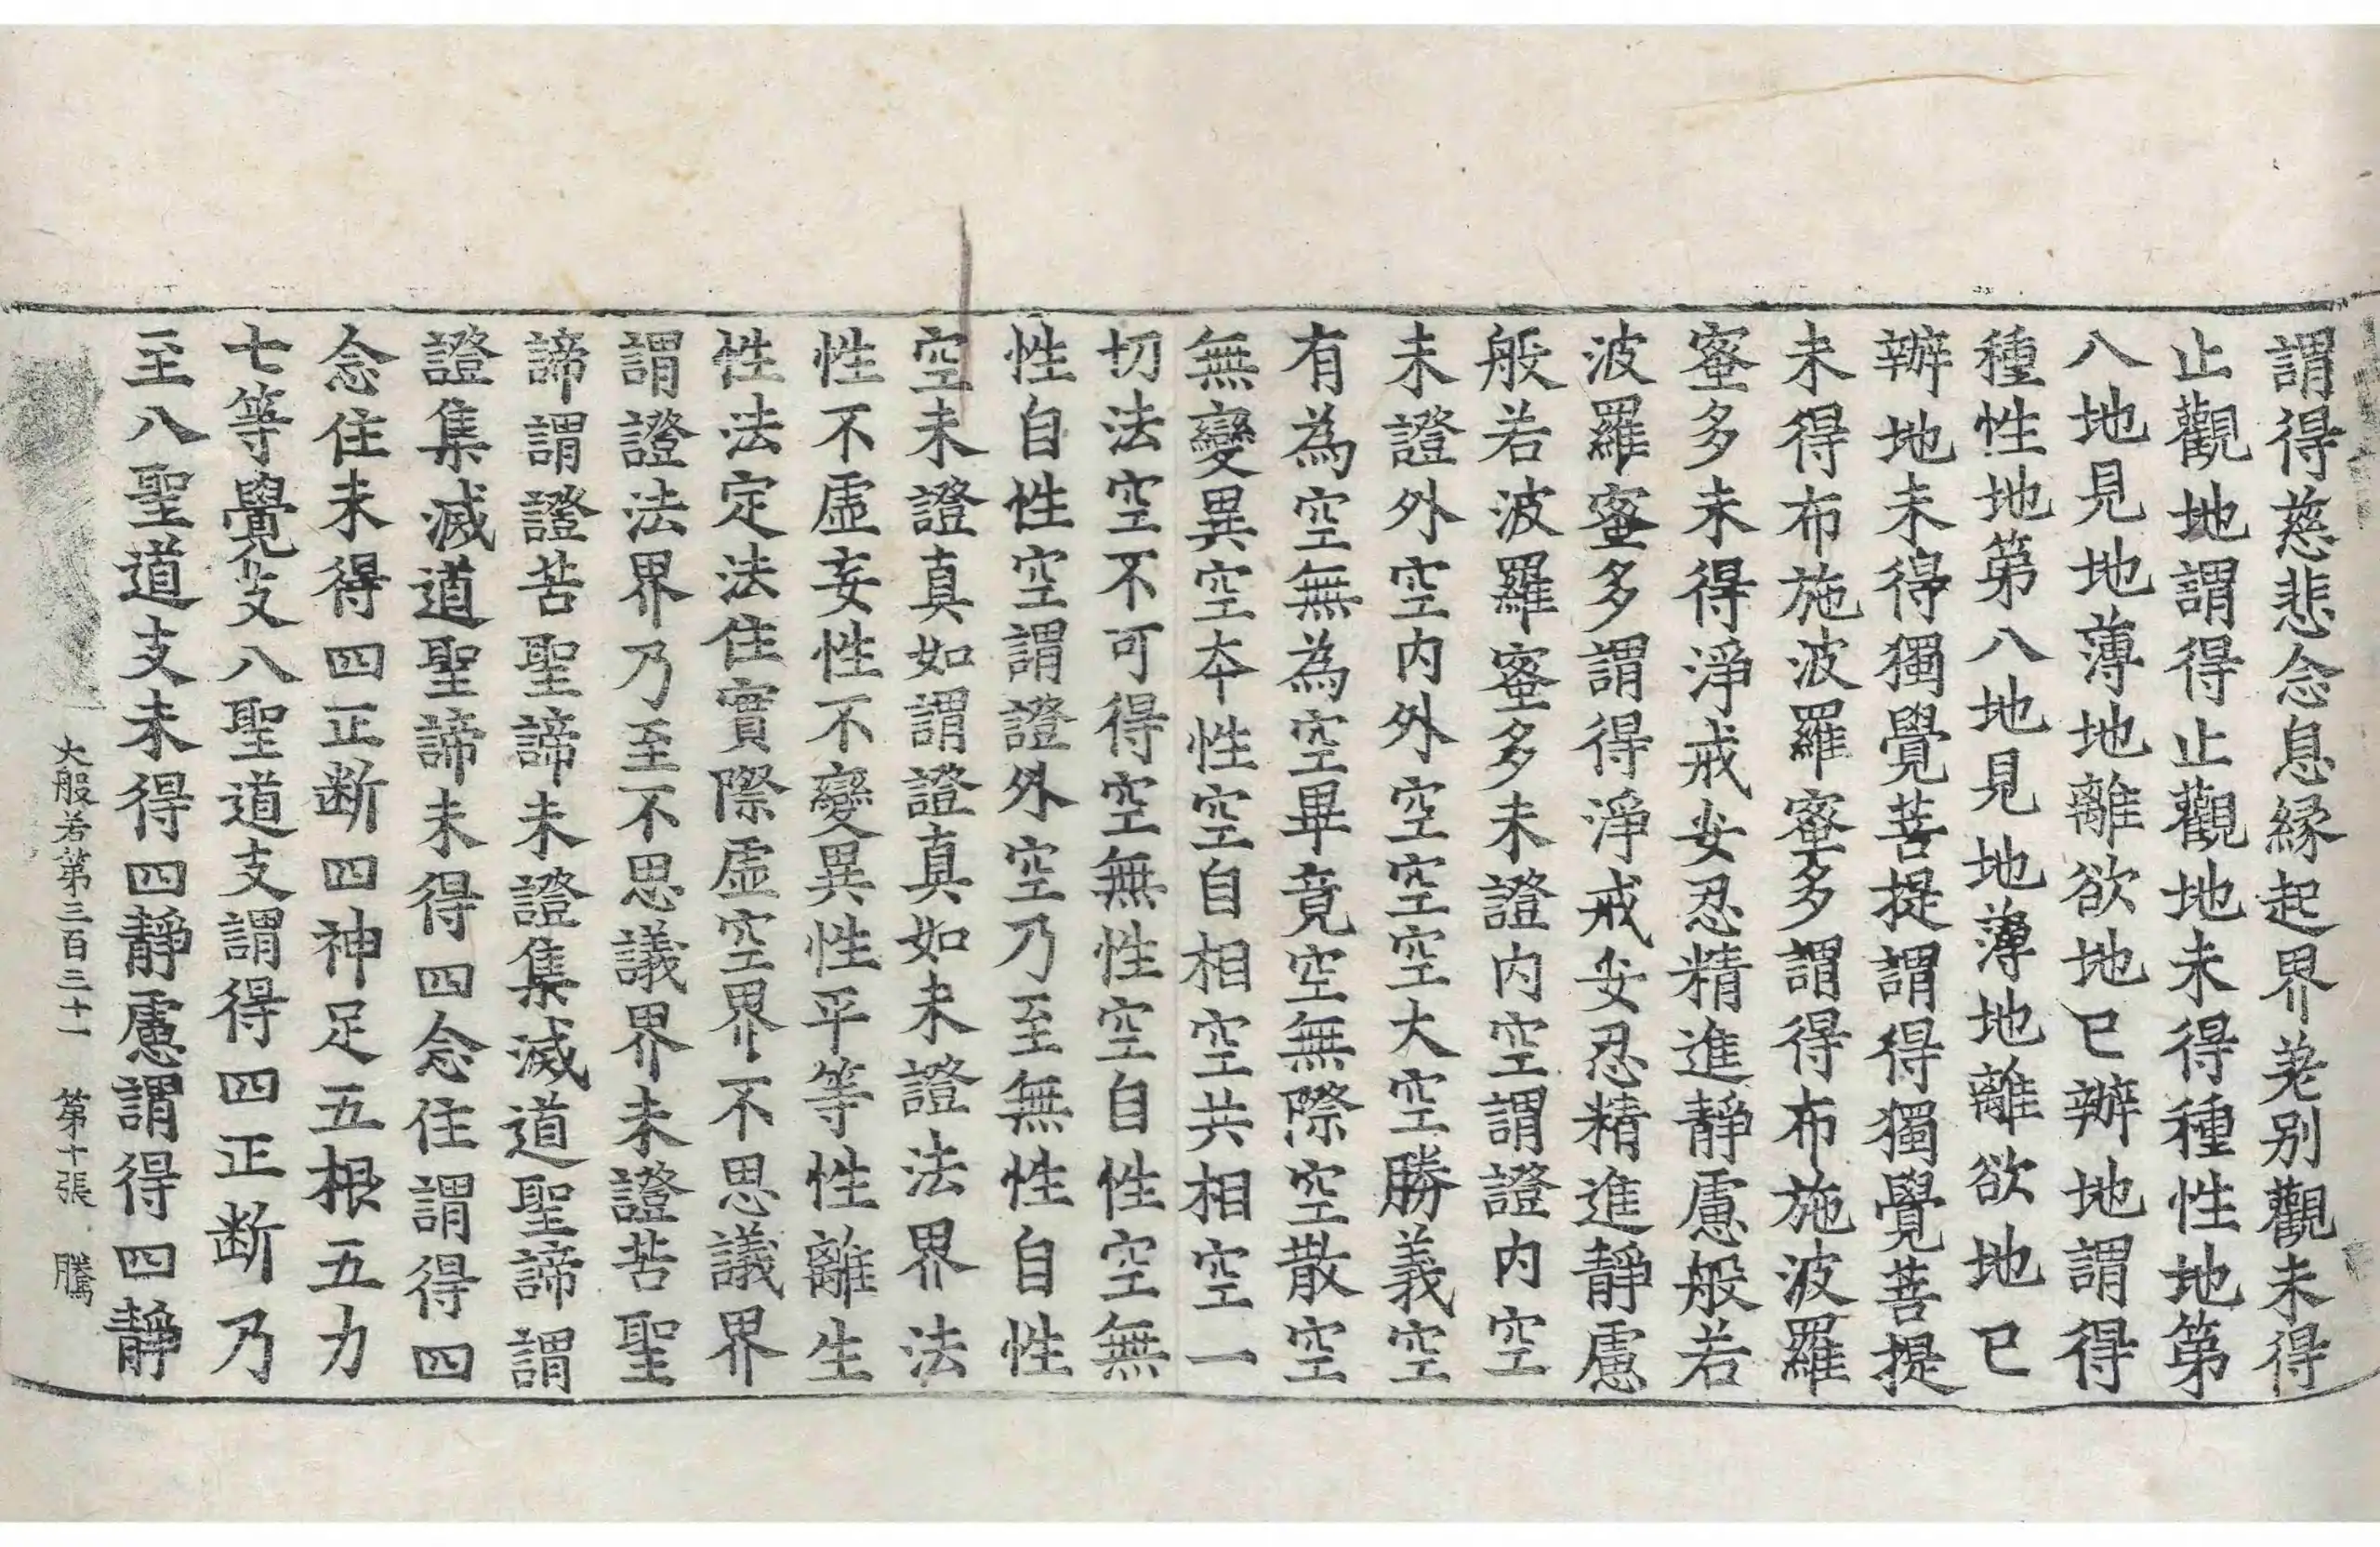 謂得慈悲念息縁起界差别觀未得
止觀地謂得止觀地未得種性地第
八地見地薄地離欲地已辦地謂得
種性地第八地見地薄地離欲地已
辦地未得獨覺菩提謂得獨覺菩提
未得布施波羅蜜多謂得布施波羅
蜜多未得淨戒安忍精進靜慮般若
波羅蜜多謂得淨戒安忍精進靜慮
般若波羅蜜多未證内空謂證内空
未證外空内外空空空大空勝義空
有為空無為空畢竟空無際空散空
無變異空本性空自相空共相空一
切法空不可得空無性空自性空無
性自性空謂證外空乃至無性自性
空未證真如謂證真如未證法界法
性不虛妄性不變異性平等性離生
性法定法住實際虛空界不思議界
謂證法界乃至不思議界未證苦聖
諦謂證苦聖諦未證集滅道聖諦謂
證集滅道聖諦未得四念住謂得四
念住未得四正断四神足五根五力
七等覺支八聖道支謂得四正断乃
至八聖道支未得四靜慮謂得四靜
大般若第三百三十一 第十張 騰